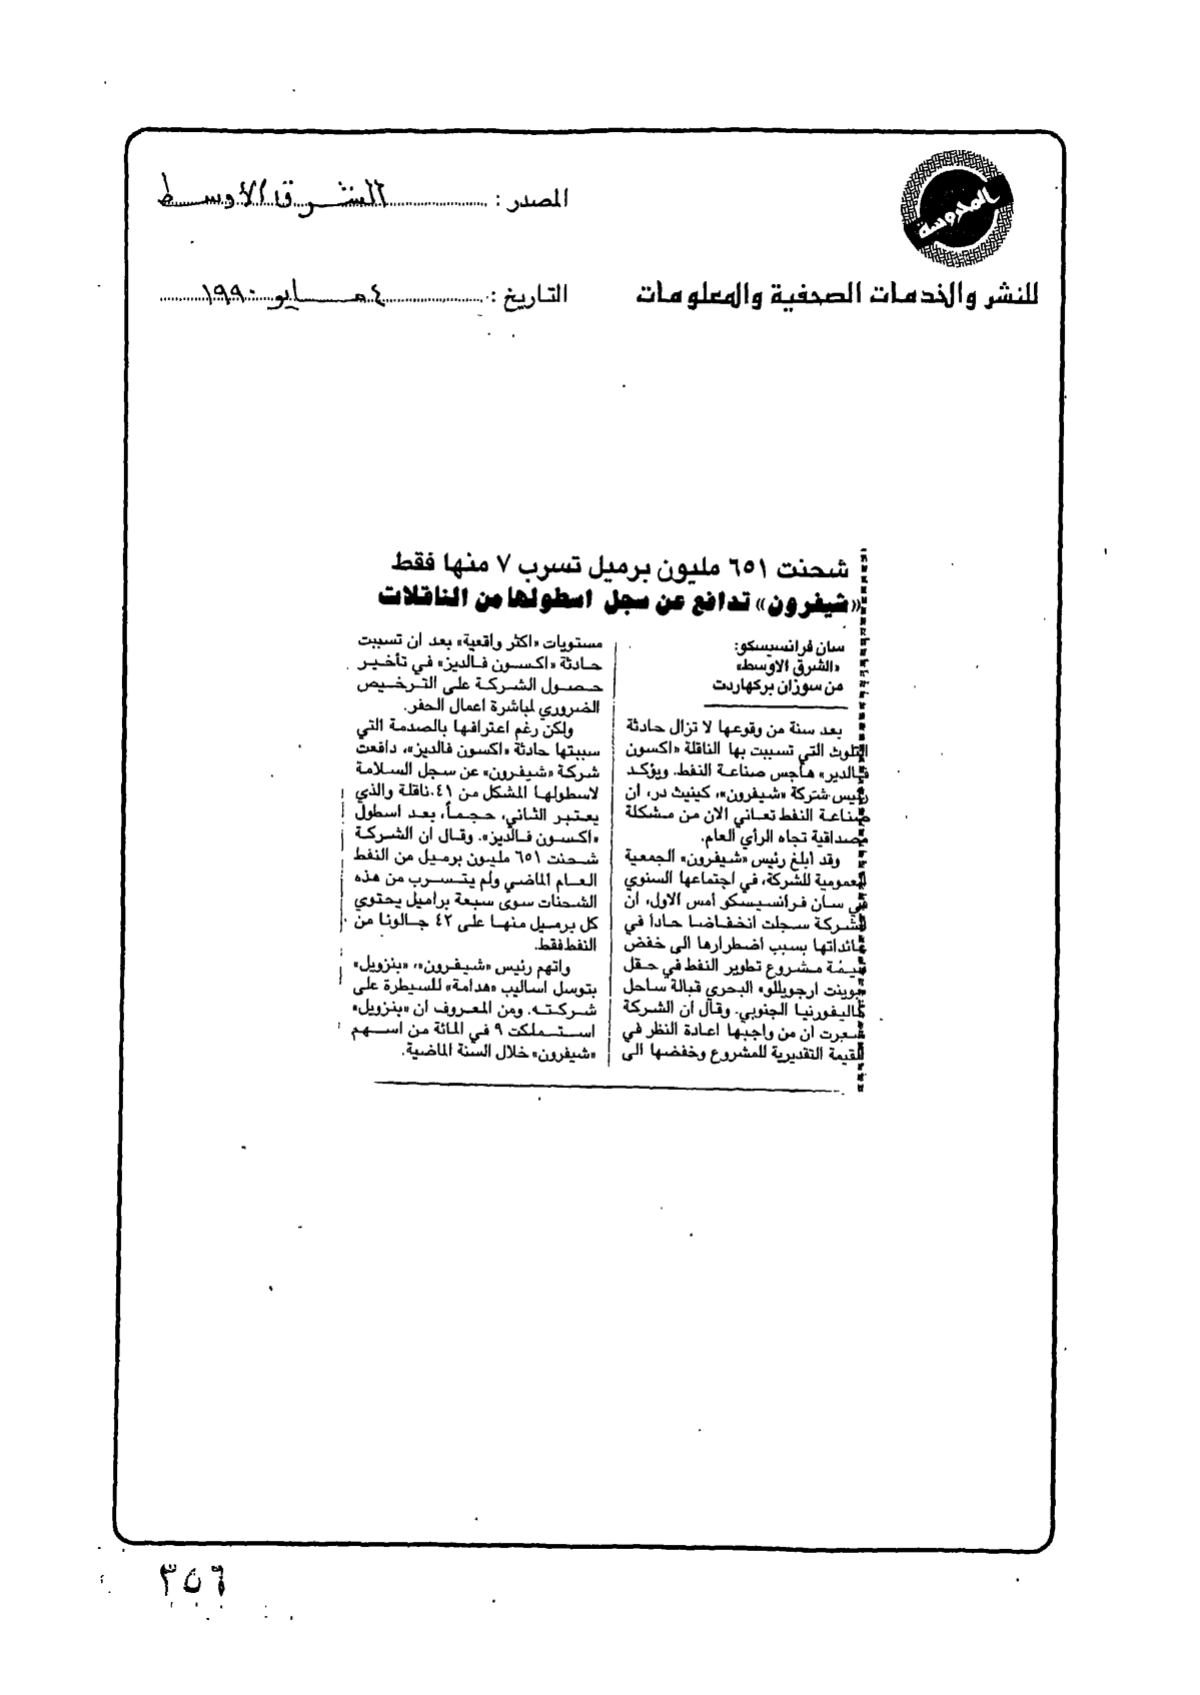 المحروسة
للنشر والخدمات الصحفية والمعلومات
المصدر : الشرق الأوسط
التاريخ : ٤ مايو ١٩٩٠
شحنت ٦٥١ مليون برميل تسرب ٧ منها فقط
«شيفرون» تدافع عن سجل اسطولها من الناقلات
سان فرانسيسكو:
«الشرق الاوسط»
من سوزان بركهاردت
بعد سنة من وقوعها لا تزال حادثة
التلوث التي تسببت بها الناقلة «اكسون
فالديز» هاجس صناعة النفط. ويؤكد
رئيس شركة «شيفرون»، كينيث در، ان
صناعة النفط تعاني الان من مشكلة
مصداقية تجاه الرأي العام.
وقد ابلغ رئيس «شيفرون» الجمعية
العمومية للشركة، في اجتماعها السنوي
في سان فرانسيسكو أمس الاول، أن
الشركة سجلت انخفاضا حادا في
عائداتها بسبب اضطرارها الى خفض
قيمة مشروع تطوير النفط في حقل
«بوينت ارجويللو» البحري قبالة ساحل
كاليفورنيا الجنوبي. وقال أن الشركة
شعرت ان من واجبها اعادة النظر في
القيمة التقديرية للمشروع وخفضها الى
مستويات «اكثر واقعية» بعد ان تسببت
حادثة «اكسون فالديز» في تأخير
حصول الشركة على الترخيص
الضروري لمباشرة اعمال الحفر.
ولكن رغم اعترافها بالصدمة التي
سببتها حادثة «اكسون فالديز»، دافعت
شركة «شيفرون» عن سجل السلامة
لاسطولها المشكل من ٤١ ناقلة والذي
يعتبر الثاني، حجماً، بعد اسطول
«اكسون فالديز». وقال أن الشركة
شحنت ٦٥١ مليون برميل من النفط
العام الماضي ولم يتسرب من هذه
الشحنات سوى سبعة براميل يحتوي
كل برميل منها على ٤٢ جالونا من
النفط فقط.
واتهم رئيس «شيفرون»، «بنزويل»
بتوسل اساليب «هدامة» للسيطرة على
شركته. ومن المعروف ان «بنزويل»
استملكت ٩ في المائة من اسهم
«شيفرون» خلال السنة الماضية.
٣٥٦